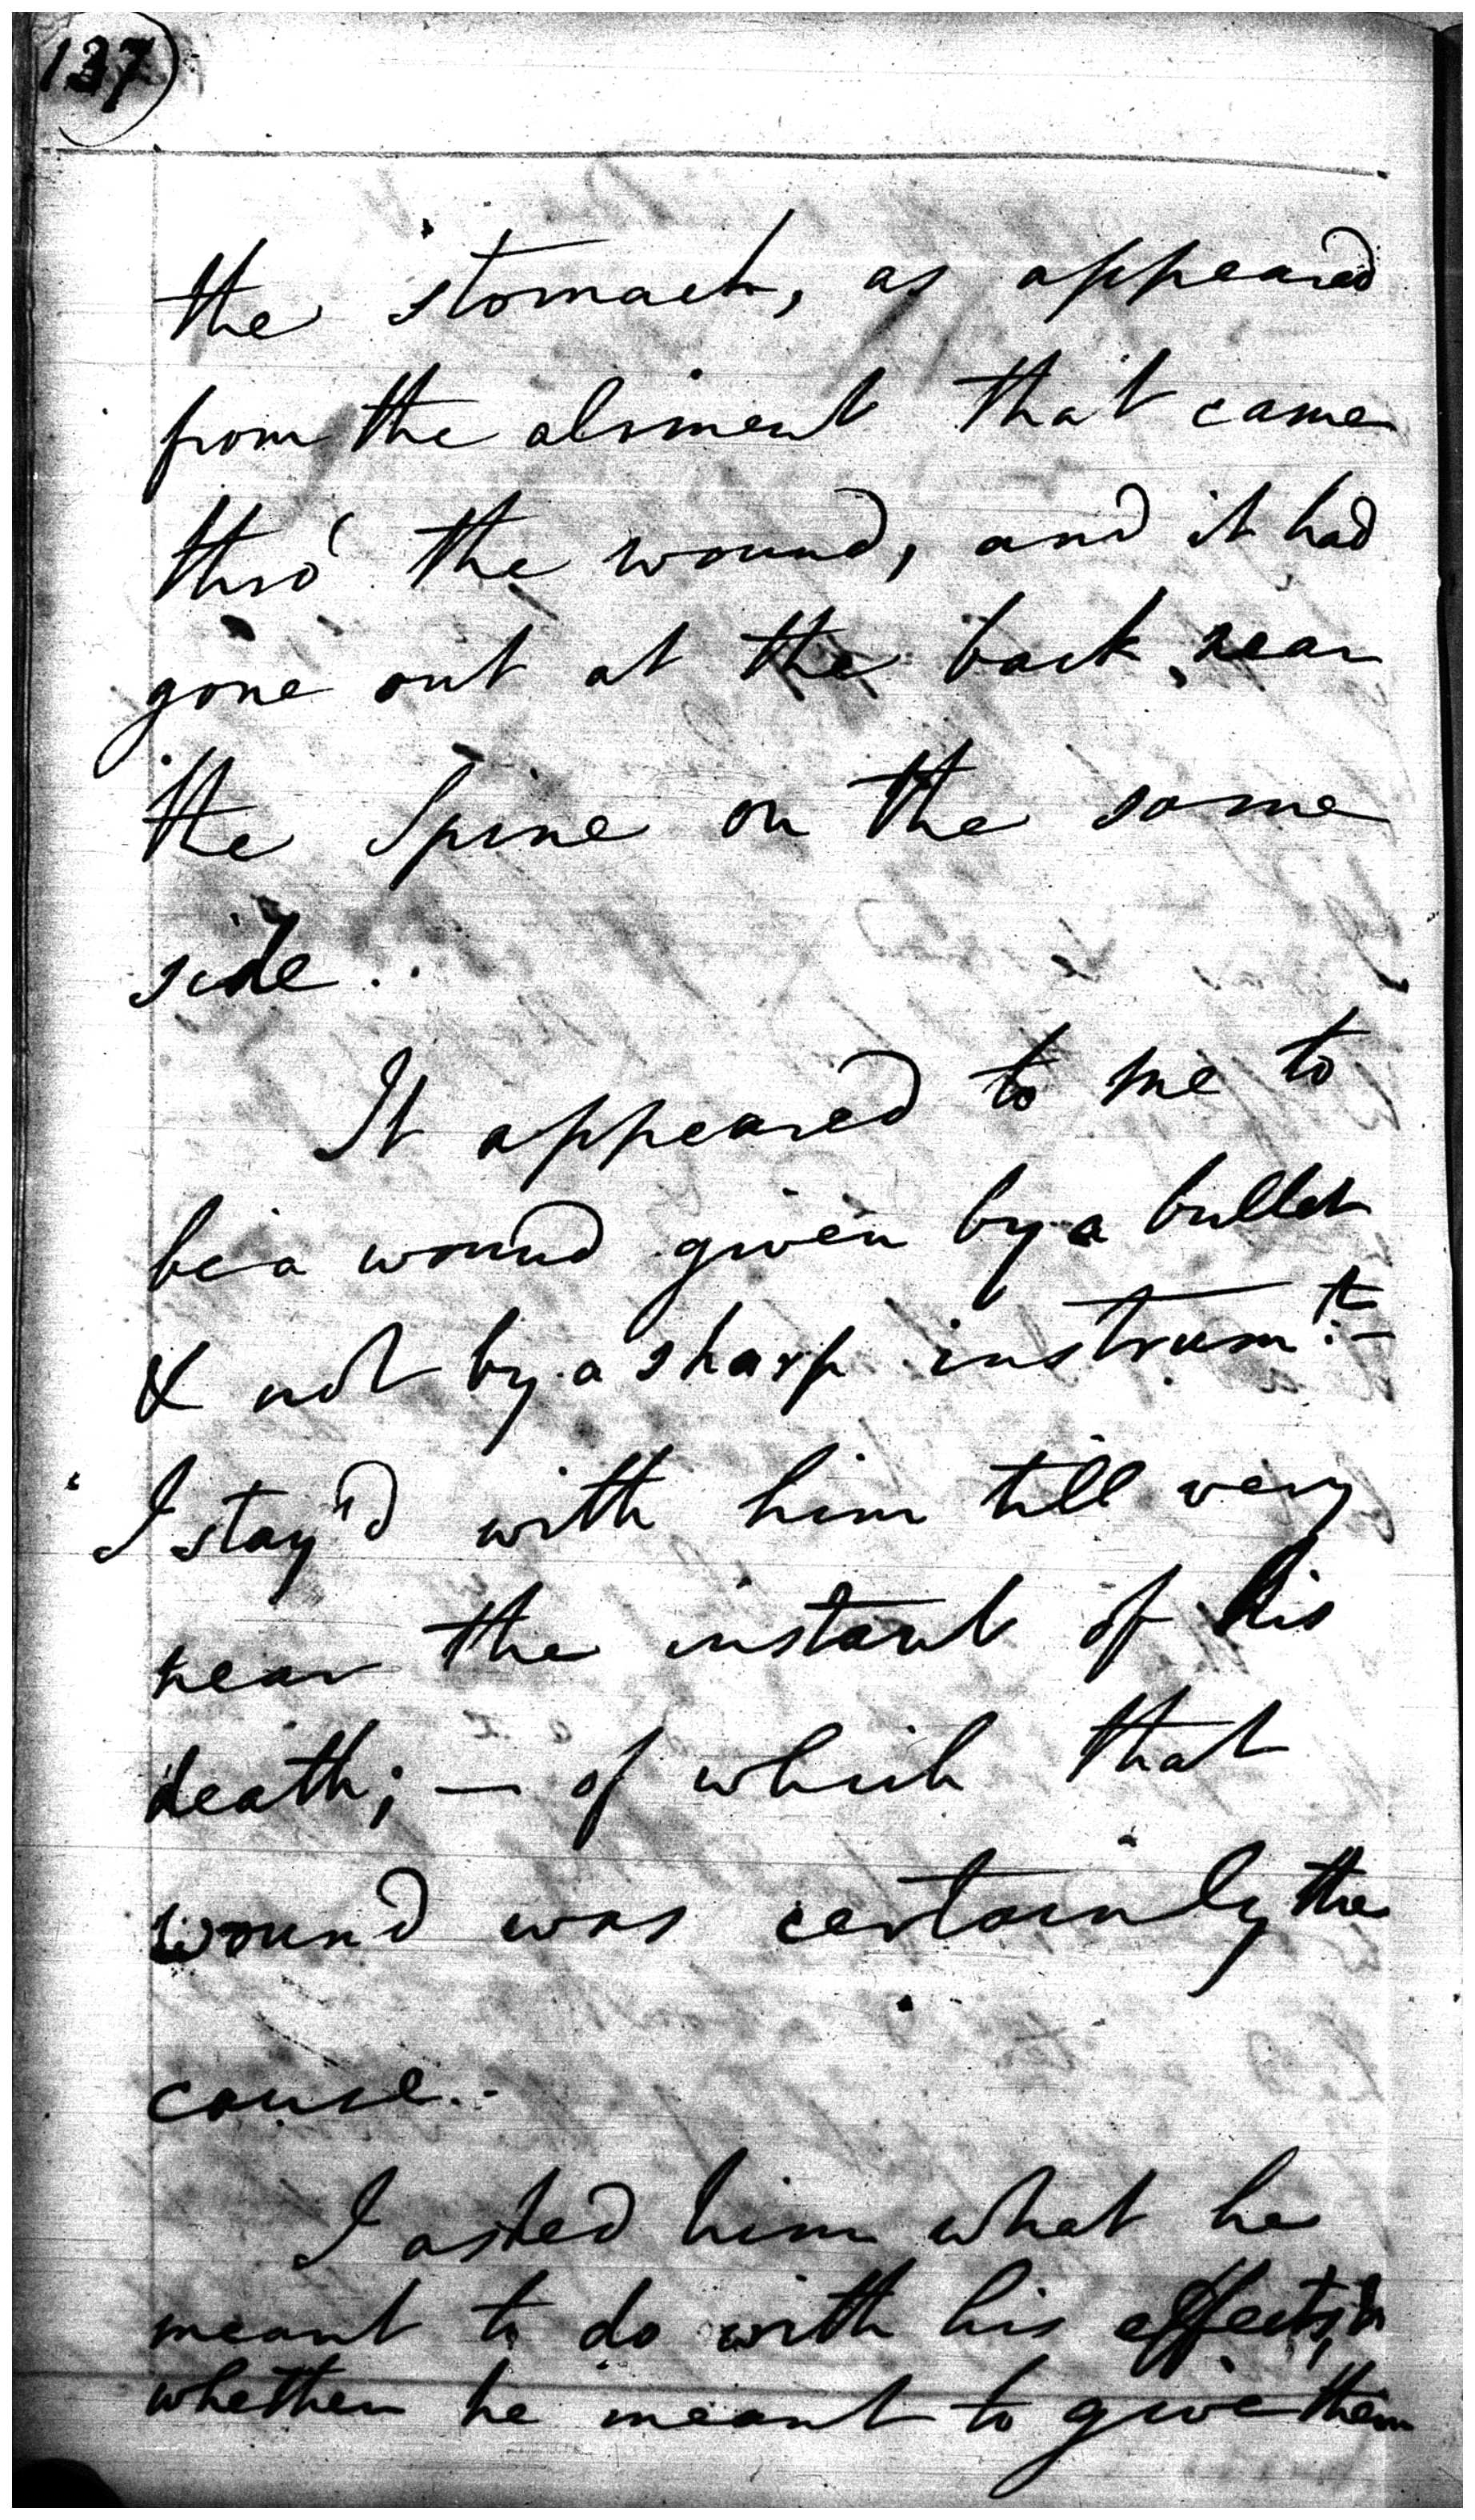 137)
the stomach, as appeared
from the aliment that came
thro' the wound, and it had
gone out at the back, near
the Spine on the same
side.
It appeared to me to
be a wound given by a bullet
& not by a sharp instrumt.-
I stay'd with him till very
near the instant of his
death; — of which that
wound was certainly the
cause.-
I asked him what he
meant to do with his effects,
whether he meant to give them